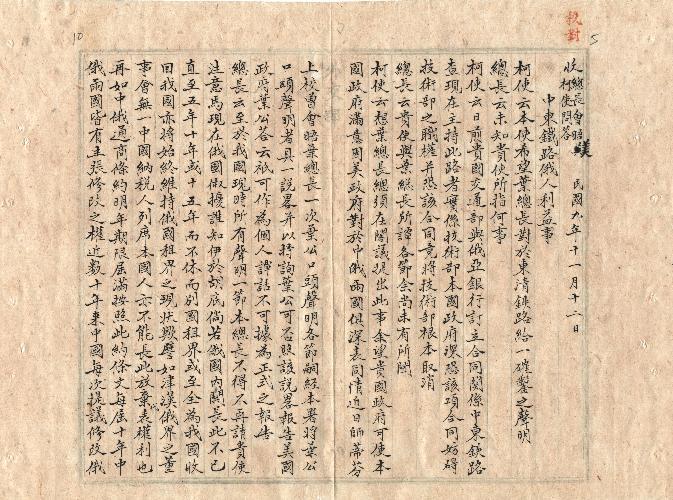 校對
5
收總長會晤美
柯使問答
民國九年十一月十二日
中東鐵路俄人利益事
柯使云本使希望葉總長對於東清鐵路給一確鑿之聲明
總長云未知貴使所指何事
柯使云日前貴國交通部與俄亞銀行訂立合同關係中東鐵路
查現在主持此路者實係技術部本國政府深恐該項合同妨碍
技術部之職權并恐該合同竟將技術部根本取消
總長云貴使與葉總長所譚各節余尚未有所聞
柯使云想葉總長總須在閣議提出此事余望貴國政府可使本
國政府滿意因美政府對於中俄兩國俱深表同情近日師帝芬
10
上校曾會晤葉總長一次葉公口頭聲明各節嗣經本署將葉公
口頭聲明者具一說畧并以特詢葉公可否照該說畧報告美國
政府葉公答云祇可作為個人譚話不可據為正式之報告
總長云至於我國現時所有聲明一節本總長不得不再請貴使
注意焉現在俄國俶擾誰知伊於胡底倘若俄國內閧長此不已
直至五年十年或十五年而不休而別國租界或至全為我國收
回我國亦將始終維持俄國租界之現狀歟譬如津漢俄界之董
事會無一中國納稅人列席本國人亦不能長此放棄表權利也
再如中俄通商條約明年期限屆滿按照此約條文每屆十年中
俄兩國皆有主張修改之權近數十年來中國每次提議修改俄